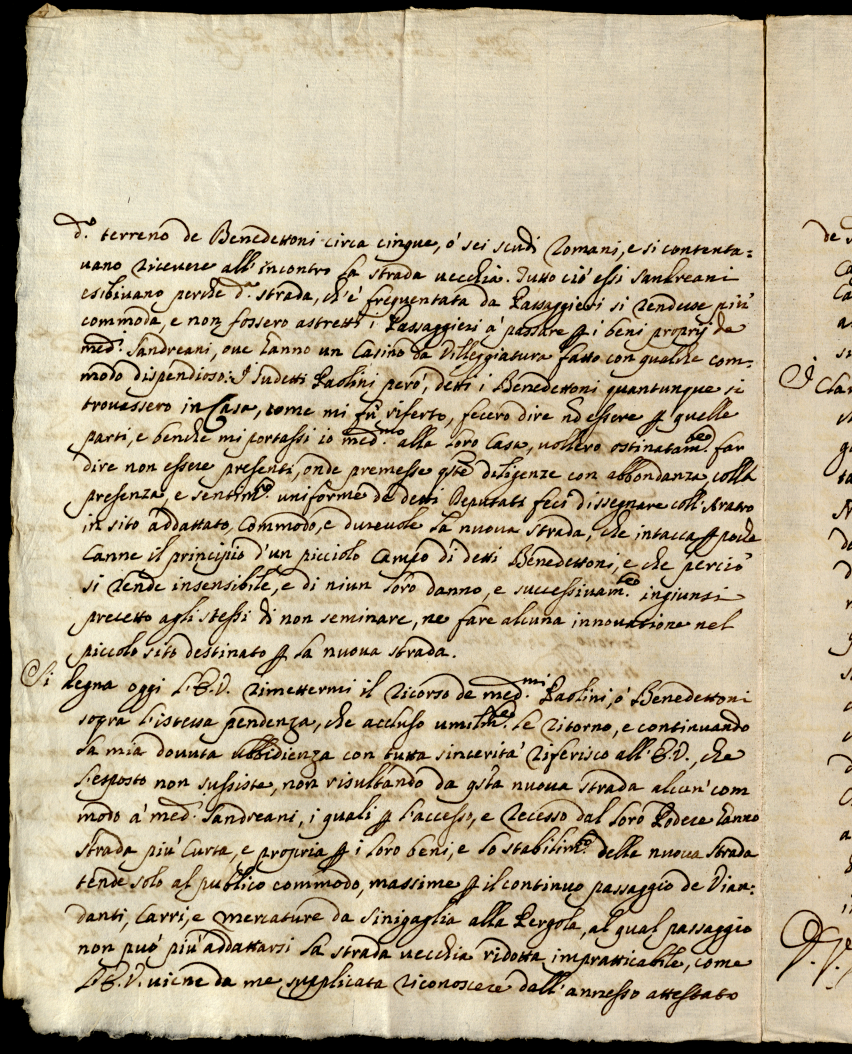 d.º terreno de Benedettoni circa cinque, ò sei scudi Romani, e si contenta=
uano riceuere all'incontro la strada uecchia. Tutto ciò essi Sandreani
esibiuano perche d.ª strada, ch'è frequentata da Passaggieri si rendesse più
commoda, e non fossero astretti i Passaggieri à passare p i beni proprij de
med.i Sandreani, oue hanno un Casino da Villeggiatura fatto con qualche com=
modo dispendioso: I sudetti Paolini però, detti i Benedettoni quantunque si
trouassero in Casa, come mi fù riferto, fecero dire nõ essere p quelle
parti, e benche mi portassi io med.mo alla loro Casa, uollero ostinatam.te far
dire non essere presenti, onde premesse q.ste diligenze con abbondanza, colla
presenza, e sentim.to uniforme de detti Deputati feci dissegnare coll'Aratro
in sito addattato, commodo, e dureuole la nuoua strada, che intacca p poche
Canne il principio d'un picciolo Campo di detti Benedettoni, e che perciò
si rende insensibile, e di niun loro danno, e successiuam.te ingiunsi
precetto agli stessi di non seminare, ne fare alcuna innouatione nel
piccolo sito destinato p la nuoua strada.
Si degna oggi L'E.V. rimettermi il ricorso de med.mi Paolini, ò Benedettoni
sopra l'istessa pendenza, che accluso umilm.te le ritorno, e continuando
la mia douuta ubbidienza con tutta sincerità riferisco all'E.V., che
l'esposto non sussiste, non risultando da q.sta nuoua strada alcun' com
modo à med.i Sandreani, i quali p l'accesso, e recesso dal loro Podere hanno
strada più curta, e propria p i loro beni, e lo stabilim.to della nuoua strada
tende solo al publico commodo, massime p il continuo passaggio de Vian=
danti, Carri, e mercature da Sinigaglia alla Pergola, al qual passaggio
non può più addattarsi la strada uecchia ridotta impratticabile, come
L'E.V. uiene da me supplicata riconoscere dall'annesso attestato